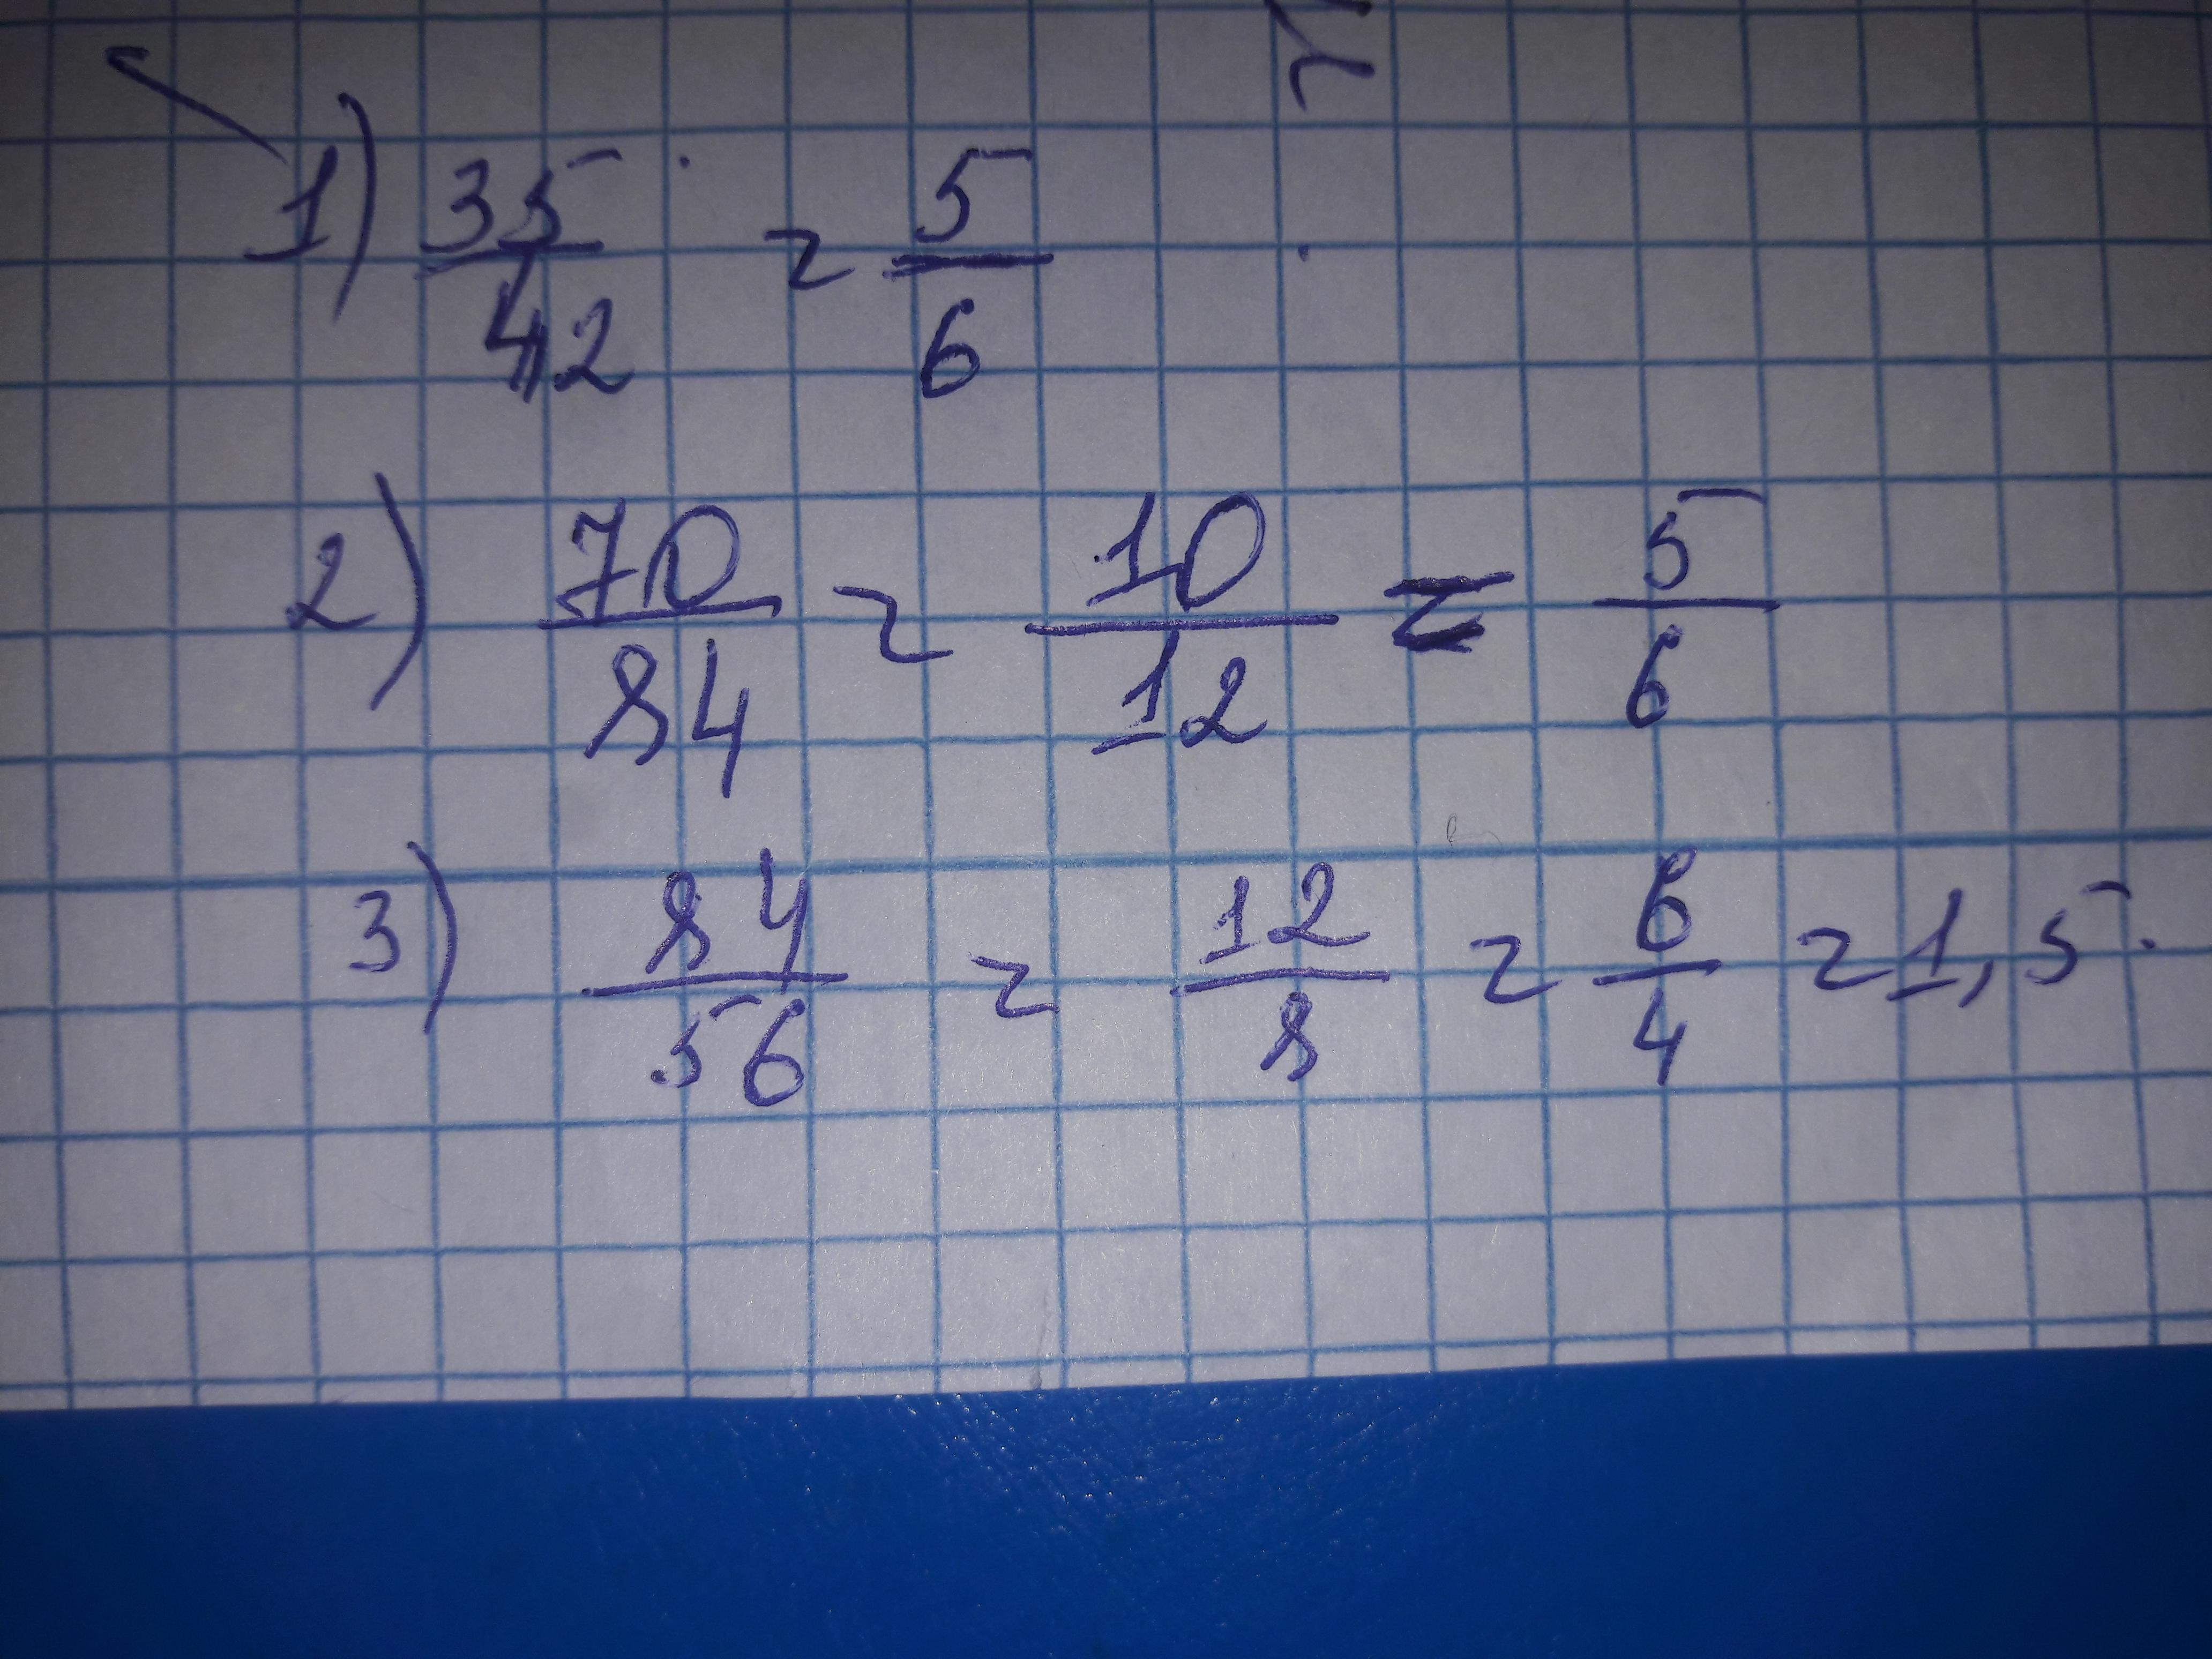 1) 35/42 = 5/6
2) 70/84 = 10/12 = 5/6
3) 84/56 = 12/8 = 6/4 = 1,5.